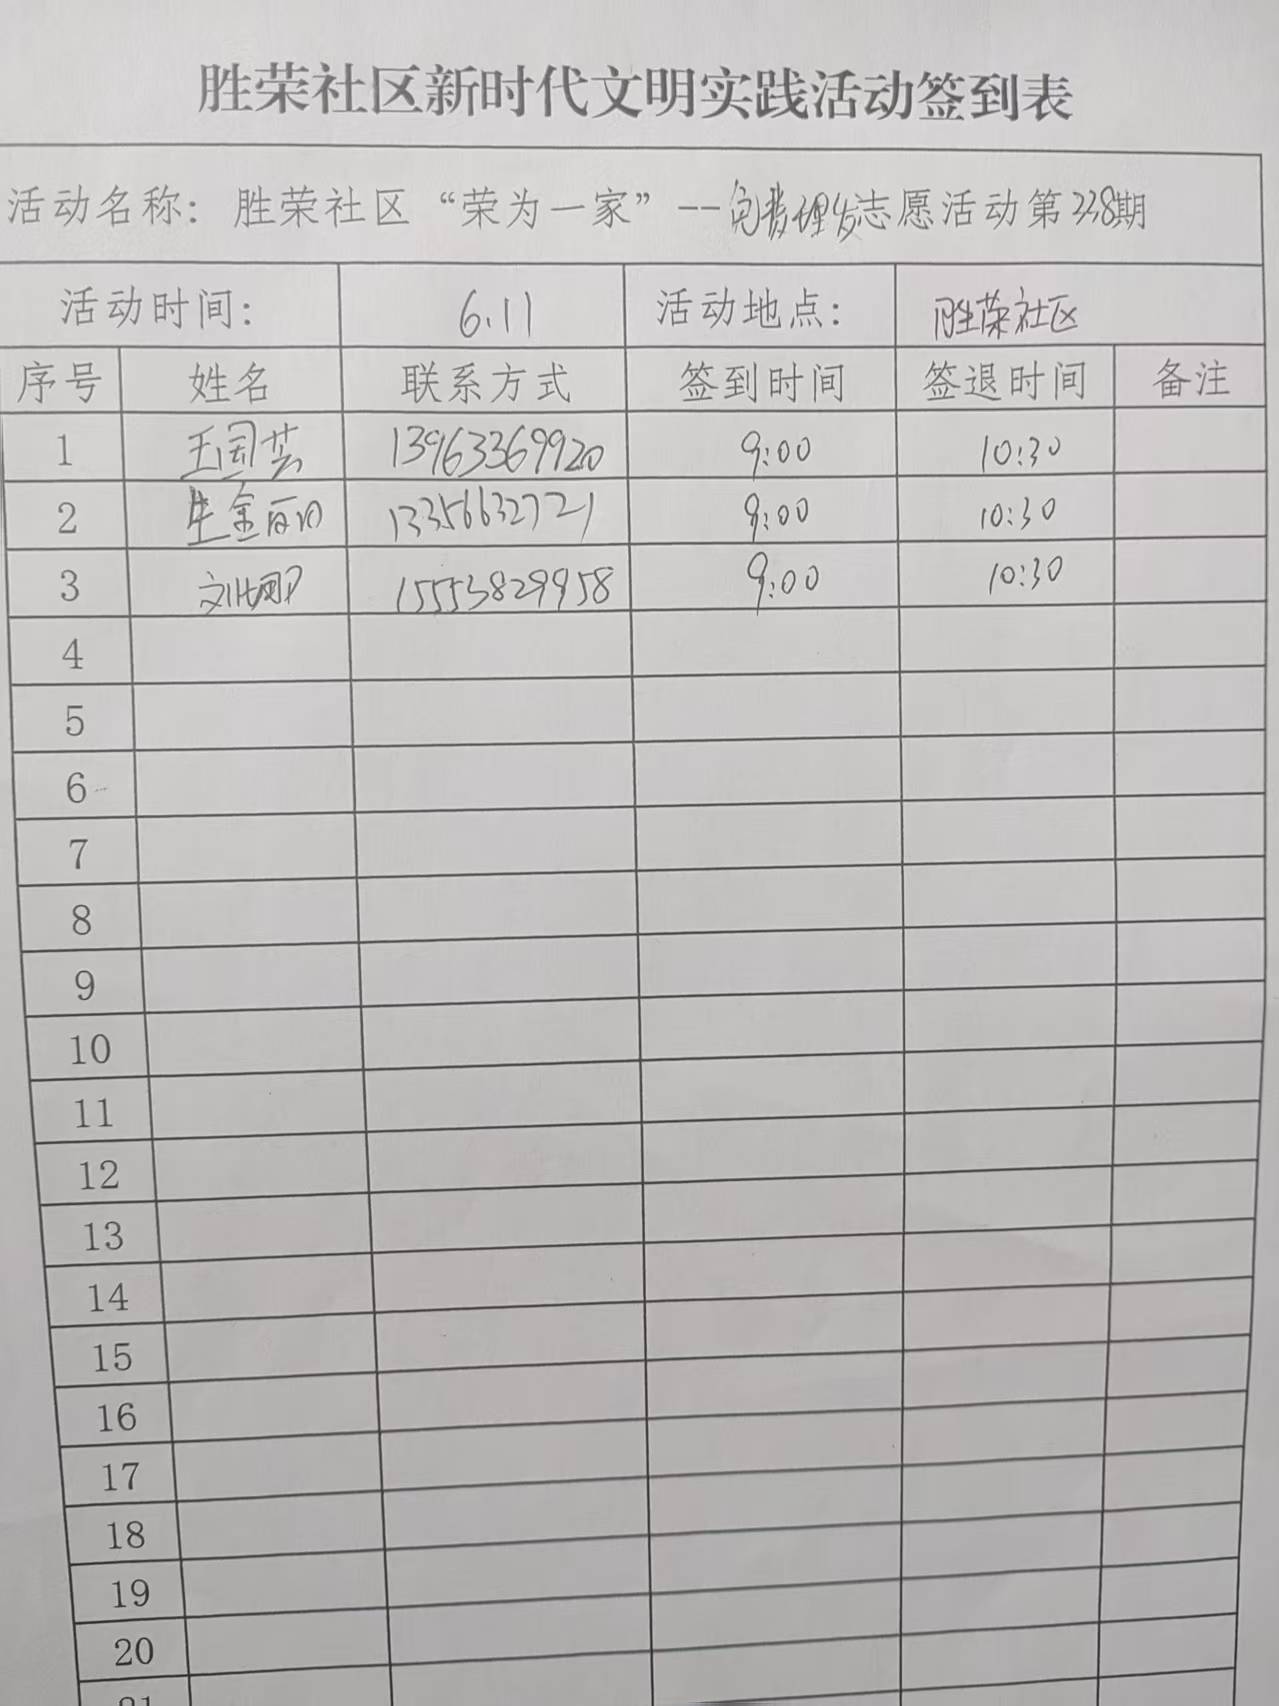 胜荣社区新时代文明实践活动签到表
活动名称：胜荣社区“荣为一家”--免费理发志愿活动第338期
活动时间： 6.11 活动地点： 胜荣社区
序号 姓名 联系方式 签到时间 签退时间 备注
1 王国芸 13963369920 9:00 10:30
2 牟金丽 13356632721 9:00 10:30
3 刘娜 15553829958 9:00 10:30
4
5
6
7
8
9
10
11
12
13
14
15
16
17
18
19
20
21